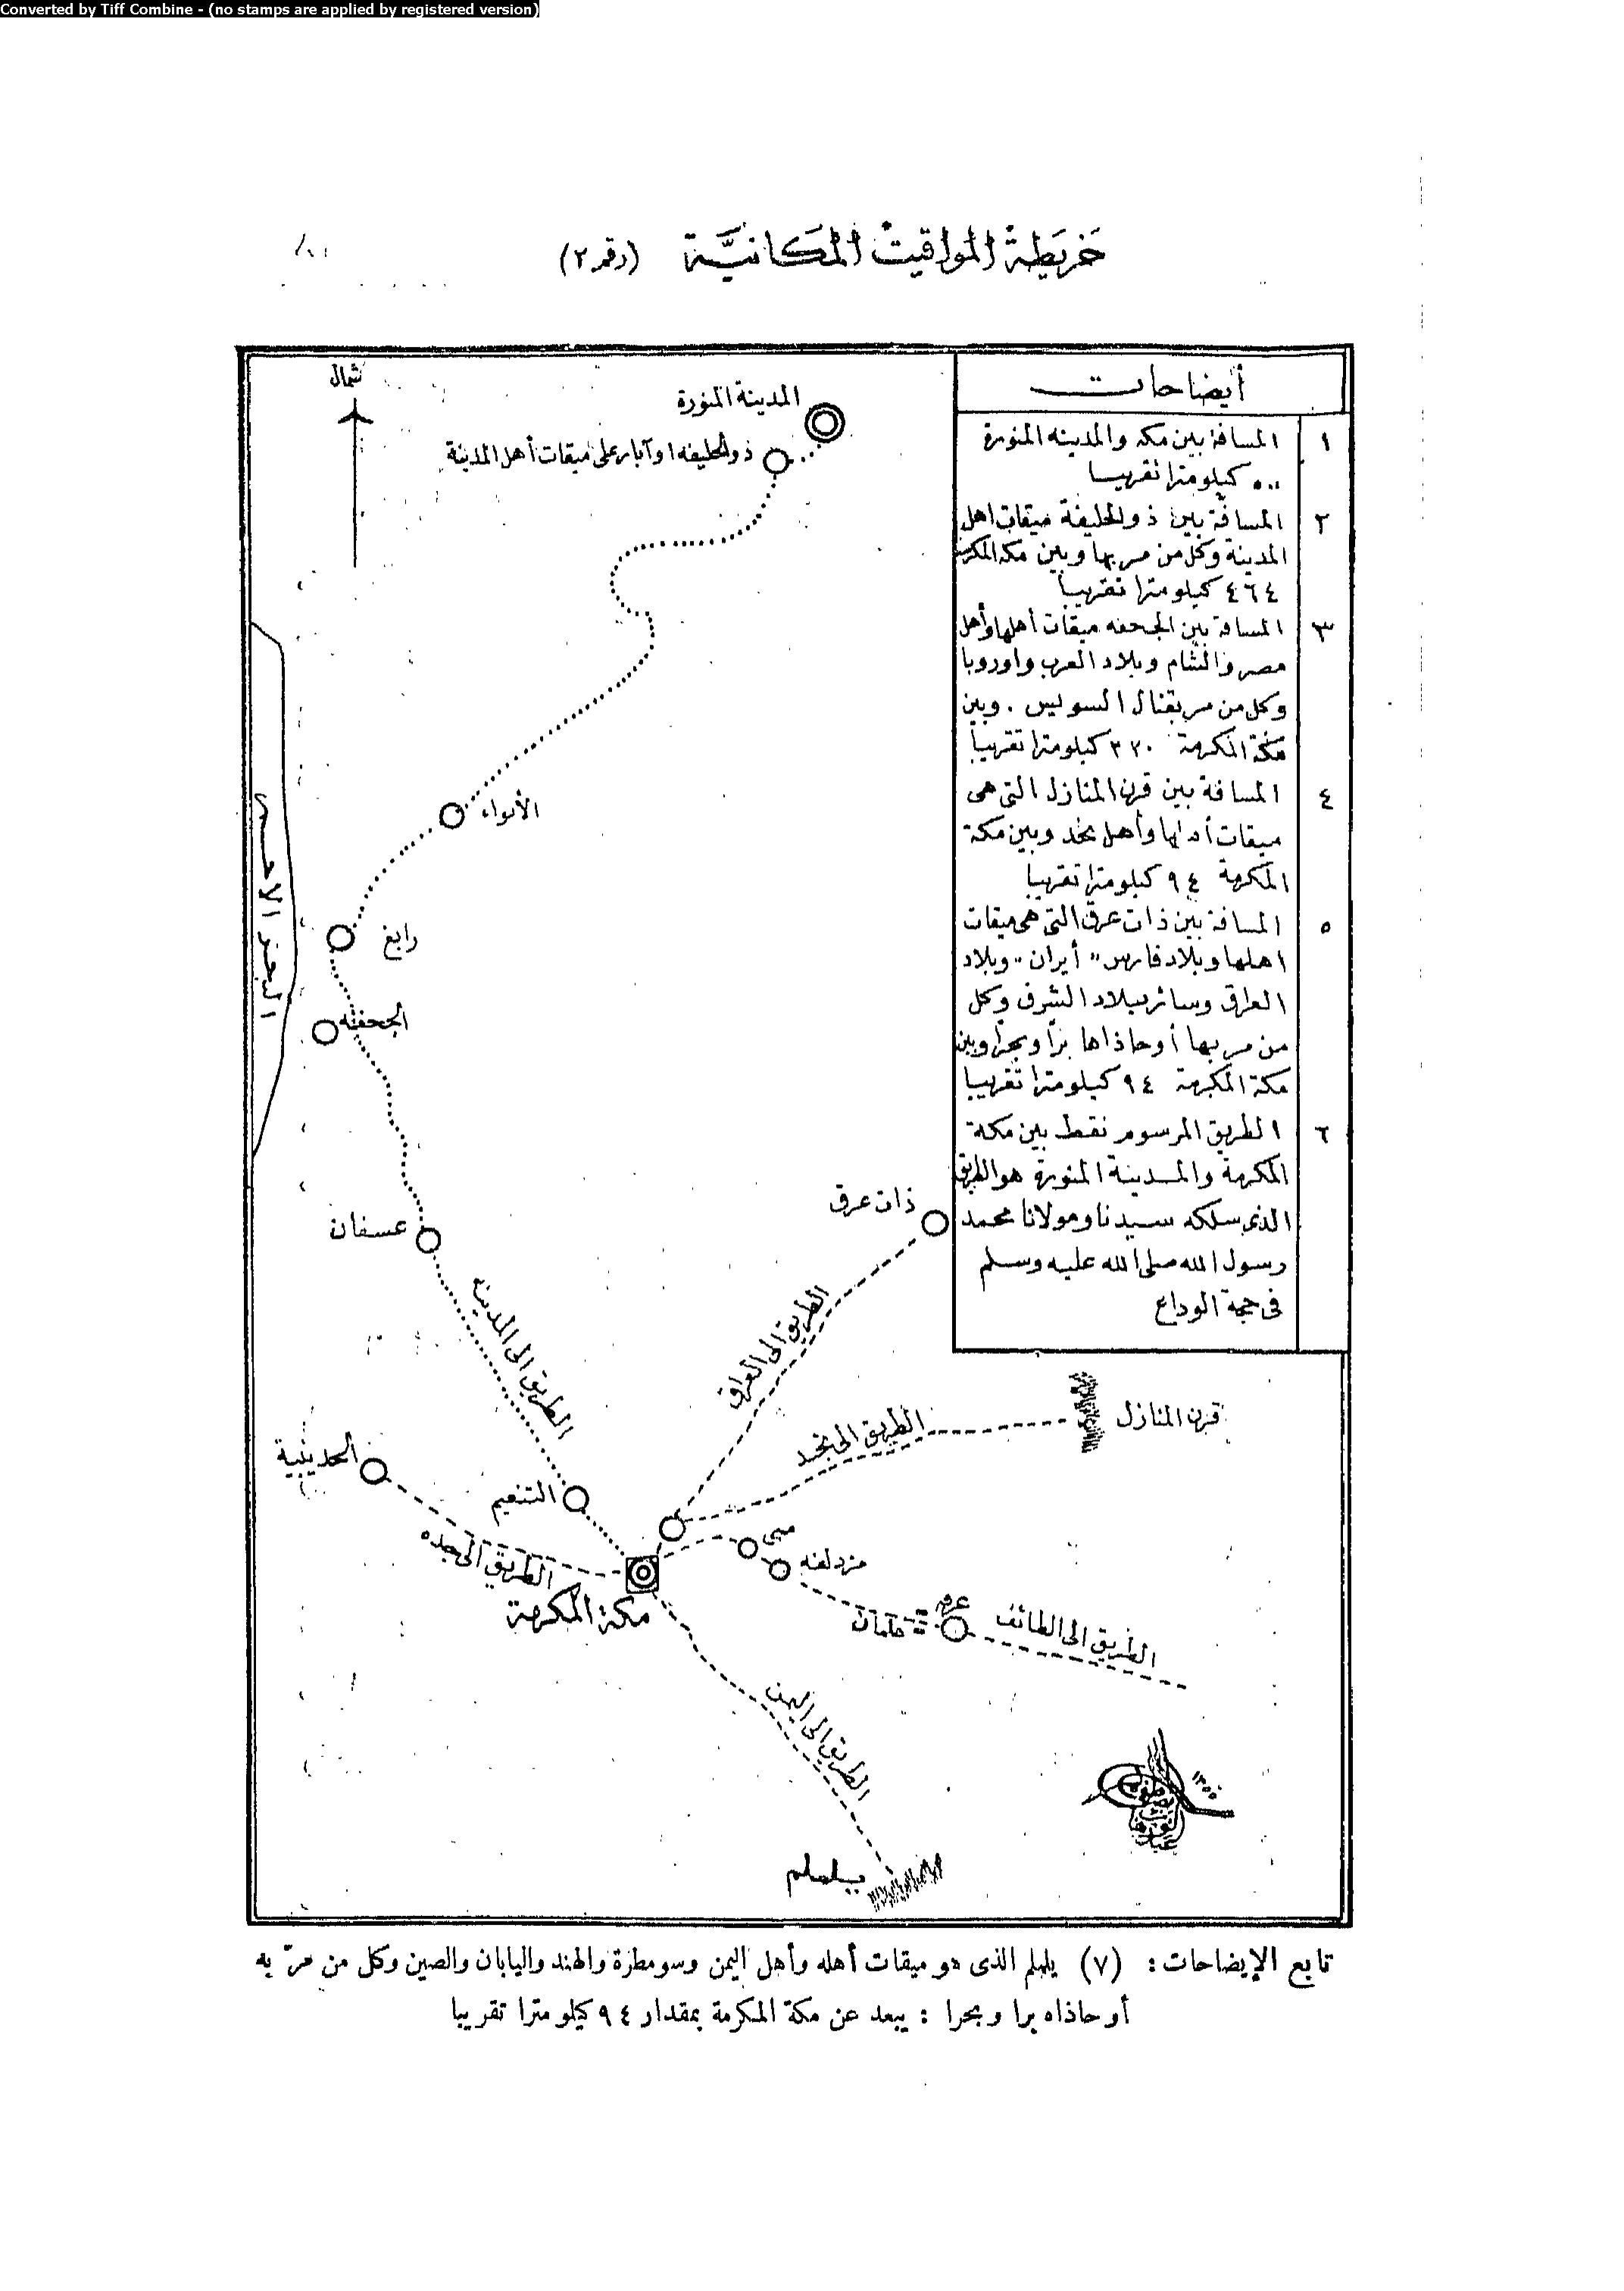 Converted by Tiff Combine - (no stamps are applied by registered version)
خريطة المواقيت المكانية (رقم ٢)
شمال
المدينة المنورة
ذو الحليفه او آبار على ميقات أهل المدينة
الأبواء
رابغ
الجحفه
البحر الاحمر
عسفان
ذات عرق
الطريق الى المدينة
الطريق الى العراق
الطريق الى نجد
قرن المنازل
الحديبية
التنعيم
الطريق الى جده
مكة المكرمة
منى
مزدلفه
عرفه
علمان
الطريق الى الطائف
الطريق الى اليمن
يلملم
١٣٥٥
أيضاحات
١ المسافة بين مكه والمدينه المنورة
٥٠٠ كيلومترا تقريبا
٢ المسافة بين ذو الحليفة ميقات اهل
المدينة وكل من مر بها وبين مكه المكرمة
٤٦٤ كيلومترا تقريبا
٣ المسافة بين الجحفه ميقات أهلها وأهل
مصر والشام وبلاد العرب واوروبا
وكل من مر بقنال السويس . وبين
مكة المكرمة ٣٢٠ كيلومترا تقريبا
٤ المسافة بين قرن المنازل التى هى
ميقات أهلها وأهل نجد وبين مكة
المكرمة ٩٤ كيلومترا تقريبا
٥ المسافة بين ذات عرق التى هى ميقات
اهلها وبلاد فارس "أيران" وبلاد
العراق وسائر بلاد الشرق وكل
من مر بها أو حاذاها براً وبحراً وبين
مكة المكرمة ٩٤ كيلومترا تقريبا
٦ الطريق المرسوم نقط بين مكة
المكرمة والمدينة المنورة هو الطريق
الذى سلكه سيدنا ومولانا محمد
رسول الله صلى الله عليه وسلم
فى حجة الوداع
تابع الإيضاحات : (٧) يلملم الذى هو ميقات أهله وأهل اليمن وسومطرة والهند واليابان والصين وكل من مرّ به
أو حاذاه برا وبحرا : يبعد عن مكة المكرمة بمقدار ٩٤ كيلو مترا تقريبا